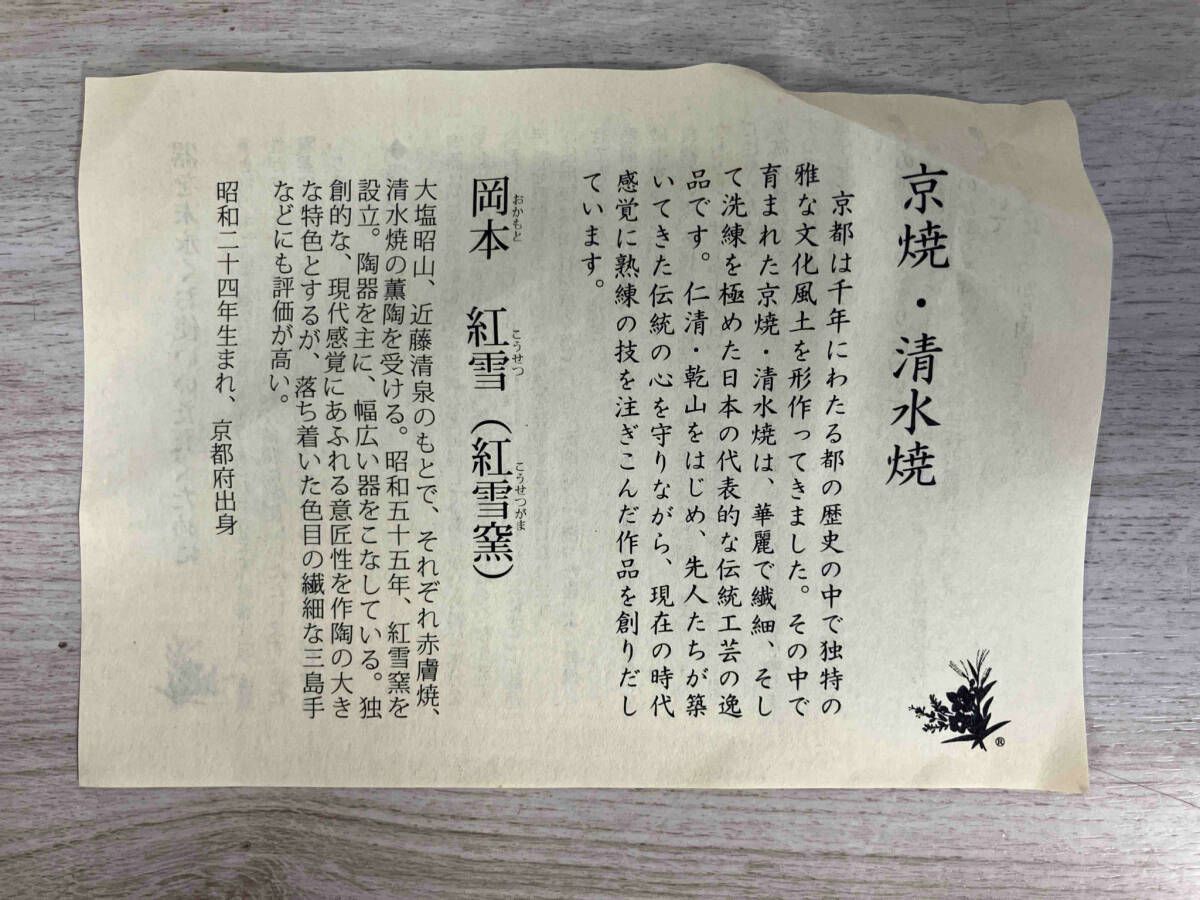 京焼・清水焼
京都は千年にわたる都の歴史の中で独特の
雅な文化風土を形作ってきました。その中で
育まれた京焼・清水焼は、華麗で繊細、そし
て洗練を極めた日本の代表的な伝統工芸の逸
品です。仁清・乾山をはじめ、先人たちが築
いてきた伝統の心を守りながら、現在の時代
感覚に熟練の技を注ぎこんだ作品を創りだし
ています。
®
おかもと こうせつ こうせつがま
岡本 紅雪（紅雪窯）
大塩昭山、近藤清泉のもとで、それぞれ赤膚焼、
清水焼の薫陶を受ける。昭和五十五年、紅雪窯を
設立。陶器を主に、幅広い器をこなしている。独
創的な、現代感覚にあふれる意匠性を作陶の大き
な特色とするが、落ち着いた色目の繊細な三島手
などにも評価が高い。
昭和二十四年生まれ、京都府出身